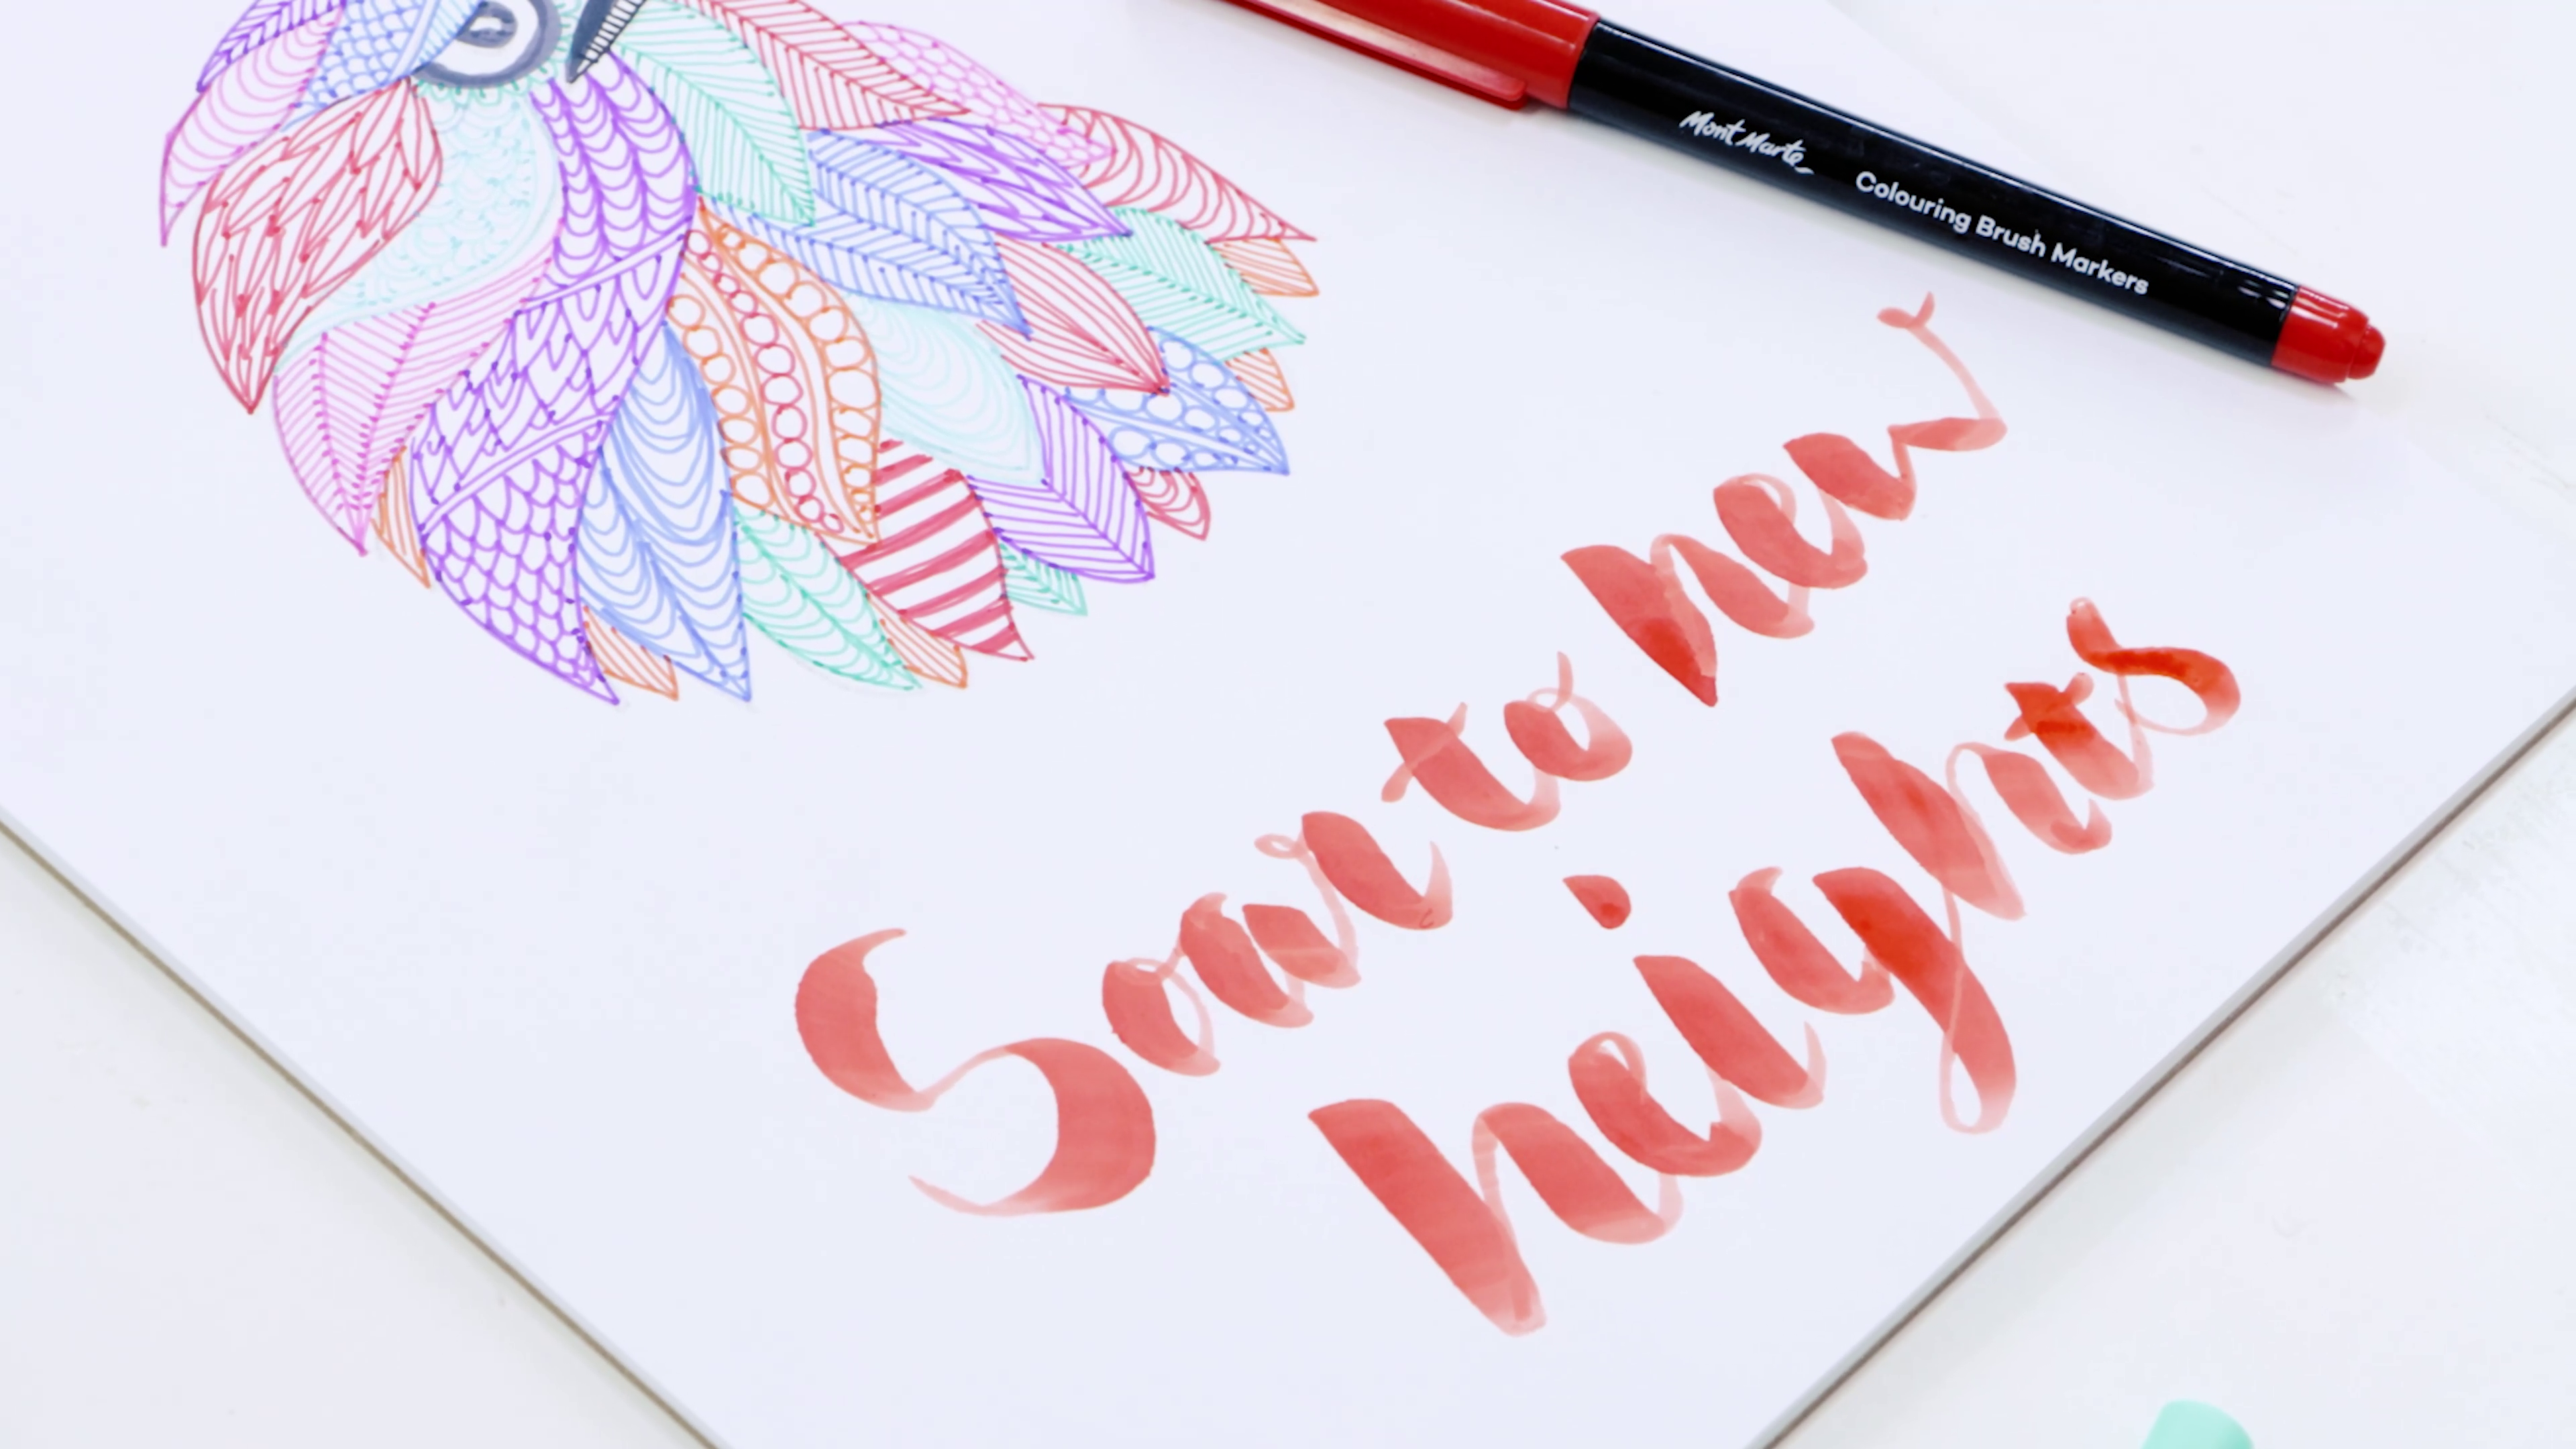 Mont Marte Colouring Brush Markers
Soar to new
heights